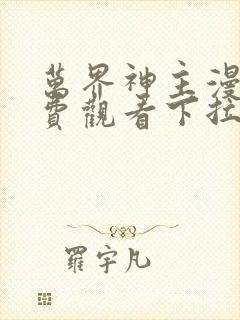 萬界神主漫
費觀看下拉
羅宇凡